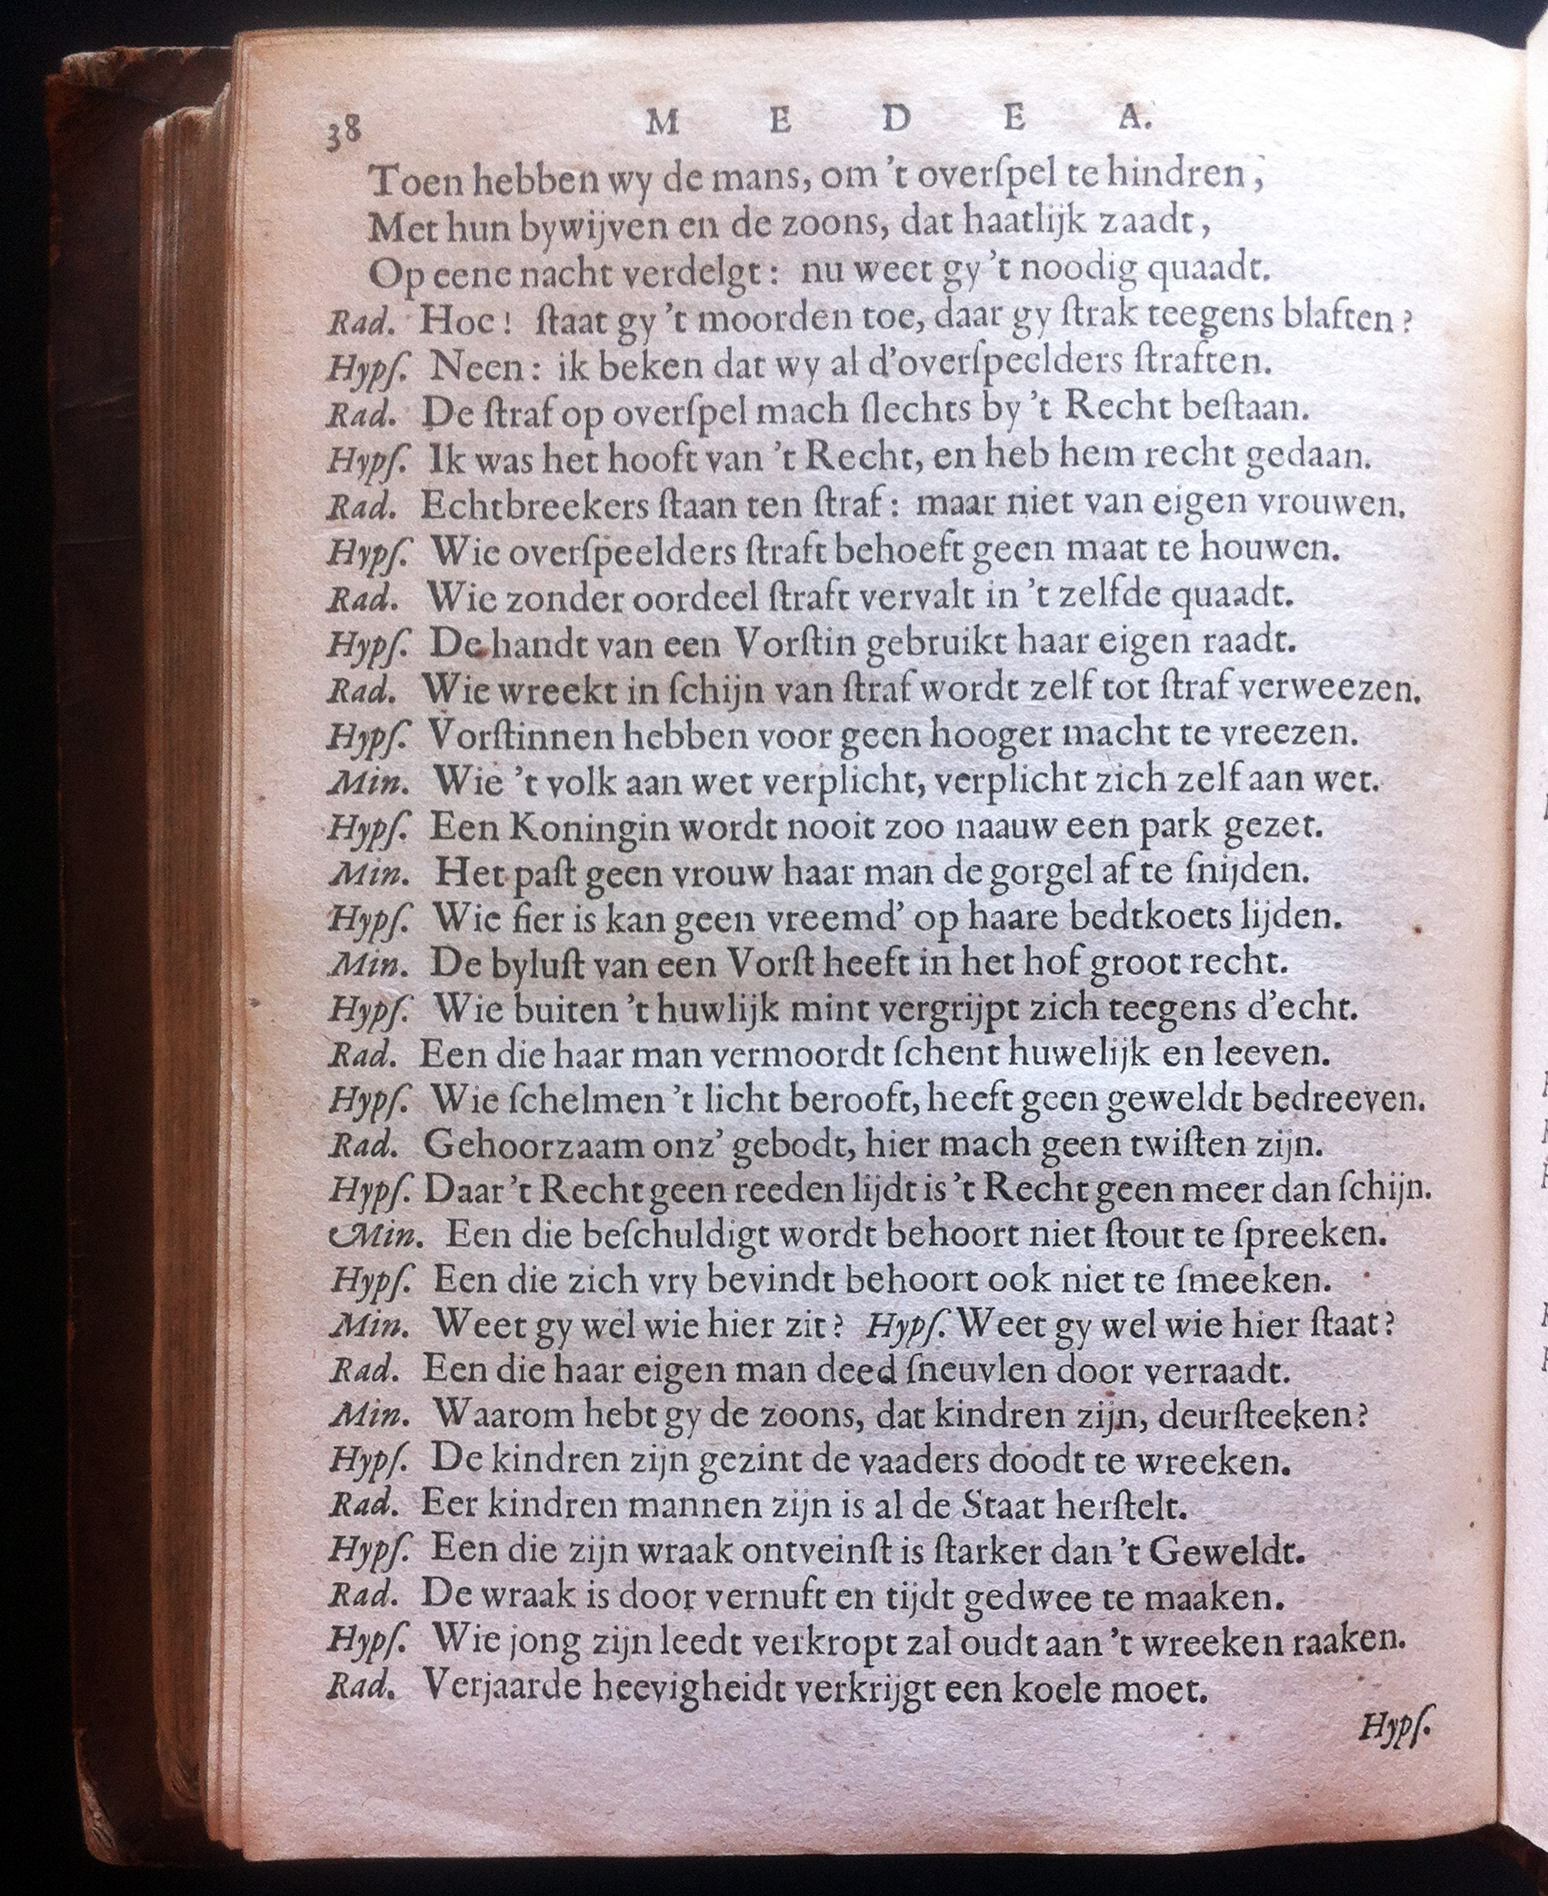 38 M E D E A.
Toen hebben wy de mans, om 't overſpel te hindren,
Met hun bywijven en de zoons, dat haatlijk zaadt,
Op eene nacht verdelgt: nu weet gy 't noodig quaadt.
Rad. Hoe! ſtaat gy 't moorden toe, daar gy ſtrak teegens blaften?
Hypſ. Neen: ik beken dat wy al d'overſpeelders ſtraften.
Rad. De ſtraf op overſpel mach ſlechts by 't Recht beſtaan.
Hypſ. Ik was het hooft van 't Recht, en heb hem recht gedaan.
Rad. Echtbreekers ſtaan ten ſtraf: maar niet van eigen vrouwen.
Hypſ. Wie overſpeelders ſtraft behoeft geen maat te houwen.
Rad. Wie zonder oordeel ſtraft vervalt in 't zelfde quaadt.
Hypſ. De handt van een Vorſtin gebruikt haar eigen raadt.
Rad. Wie wreekt in ſchijn van ſtraf wordt zelf tot ſtraf verweezen.
Hypſ. Vorſtinnen hebben voor geen hooger macht te vreezen.
Min. Wie 't volk aan wet verplicht, verplicht zich zelf aan wet.
Hypſ. Een Koningin wordt nooit zoo naauw een park gezet.
Min. Het paſt geen vrouw haar man de gorgel af te ſnijden.
Hypſ. Wie fier is kan geen vreemd' op haare bedtkoets lijden.
Min. De byluſt van een Vorſt heeft in het hof groot recht.
Hypſ. Wie buiten 't huwlijk mint vergrijpt zich teegens d'echt.
Rad. Een die haar man vermoordt ſchent huwelijk en leeven.
Hypſ. Wie ſchelmen 't licht berooft, heeft geen geweldt bedreeven.
Rad. Gehoorzaam onz' gebodt, hier mach geen twiſten zijn.
Hypſ. Daar 't Recht geen reeden lijdt is 't Recht geen meer dan ſchijn.
Min. Een die beſchuldigt wordt behoort niet ſtout te ſpreeken.
Hypſ. Een die zich vry bevindt behoort ook niet te ſmeeken.
Min. Weet gy wel wie hier zit? Hypſ. Weet gy wel wie hier ſtaat?
Rad. Een die haar eigen man deed ſneuvlen door verraadt.
Min. Waarom hebt gy de zoons, dat kindren zijn, deurſteeken?
Hypſ. De kindren zijn gezint de vaaders doodt te wreeken.
Rad. Eer kindren mannen zijn is al de Staat herſtelt.
Hypſ. Een die zijn wraak ontveinſt is ſtarker dan 't Geweldt.
Rad. De wraak is door vernuft en tijdt gedwee te maaken.
Hypſ. Wie jong zijn leedt verkropt zal oudt aan 't wreeken raaken.
Rad. Verjaarde heevigheidt verkrijgt een koele moet.
Hypſ.